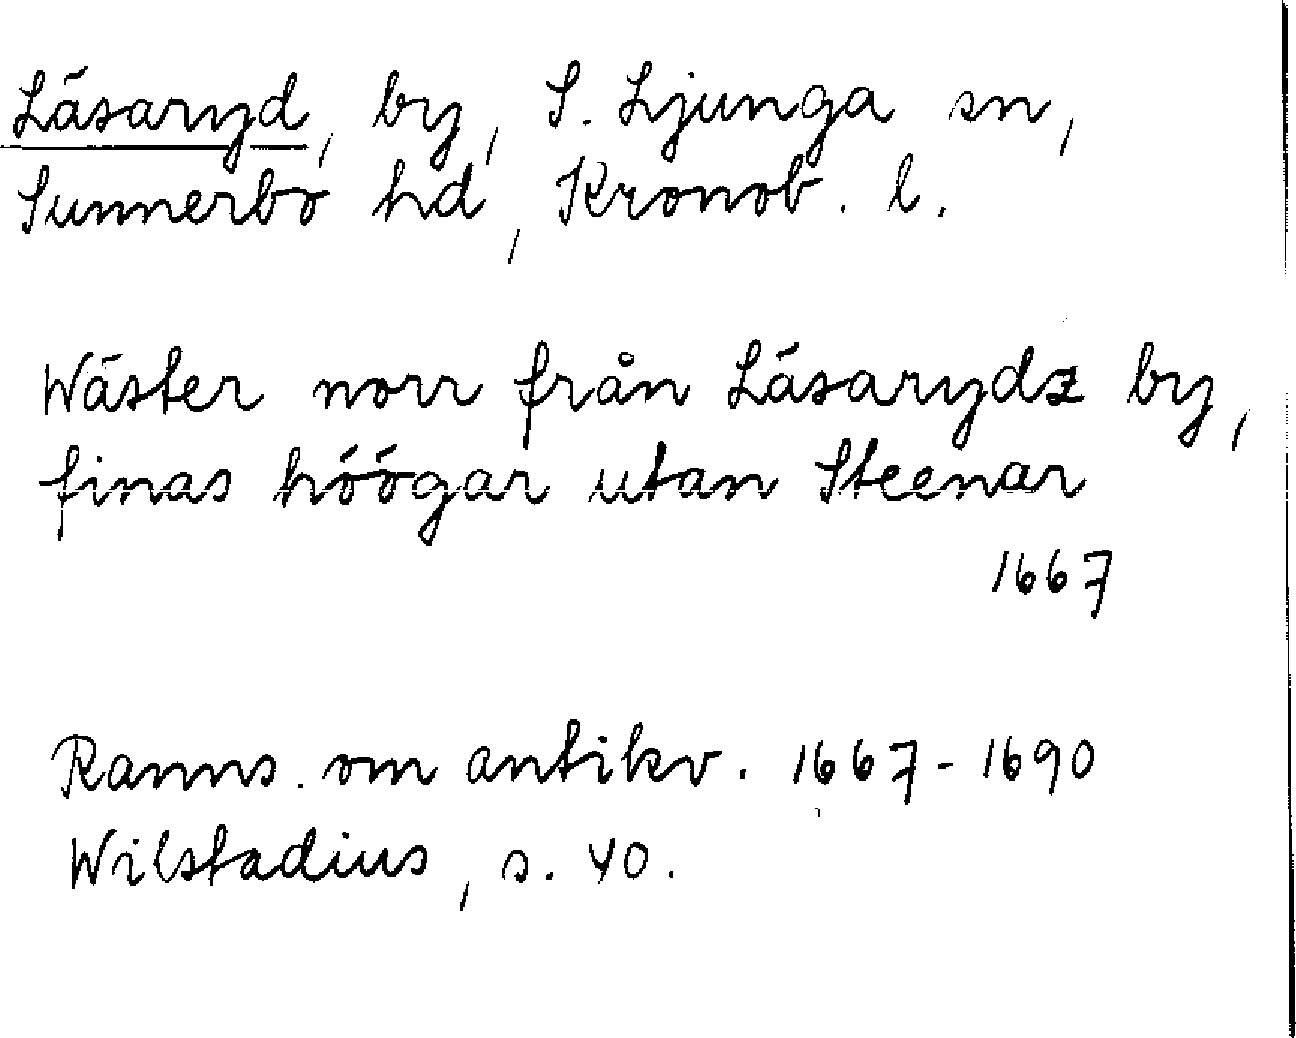 Läsaryd, by, S. Ljunga sn,
Sunnerbo hd, Kronob. l.
Wäster norr från Läsarydz by,
finas höögar utan Steenar
1667
Ranns. om antikv. 1667-1690
Wilstadius, s. 40.